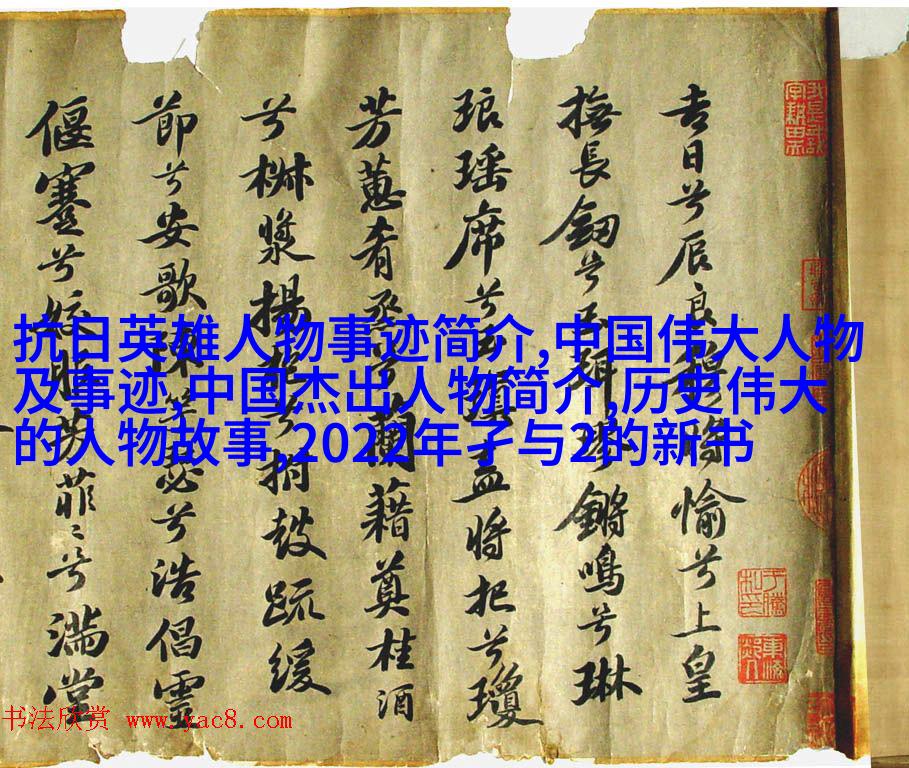 吉日兮辰良穆將愉兮上皇
撫長劔兮玉珥璆鏘鳴兮琳
琅瑶席兮玉瑱盍將把兮瓊
芳蕙肴烝兮蘭藉奠桂酒
兮椒漿揚枹兮拊鼓疏緩
節兮安歌陳竽瑟兮浩倡靈
偃蹇兮姣服芳菲〻兮滿堂
抗日英雄人物事迹简介,中国伟大人物
及事迹,中国杰出人物简介,历史伟大
的人物故事,2022年孑与2的新书
书法欣赏 www.yac8.com